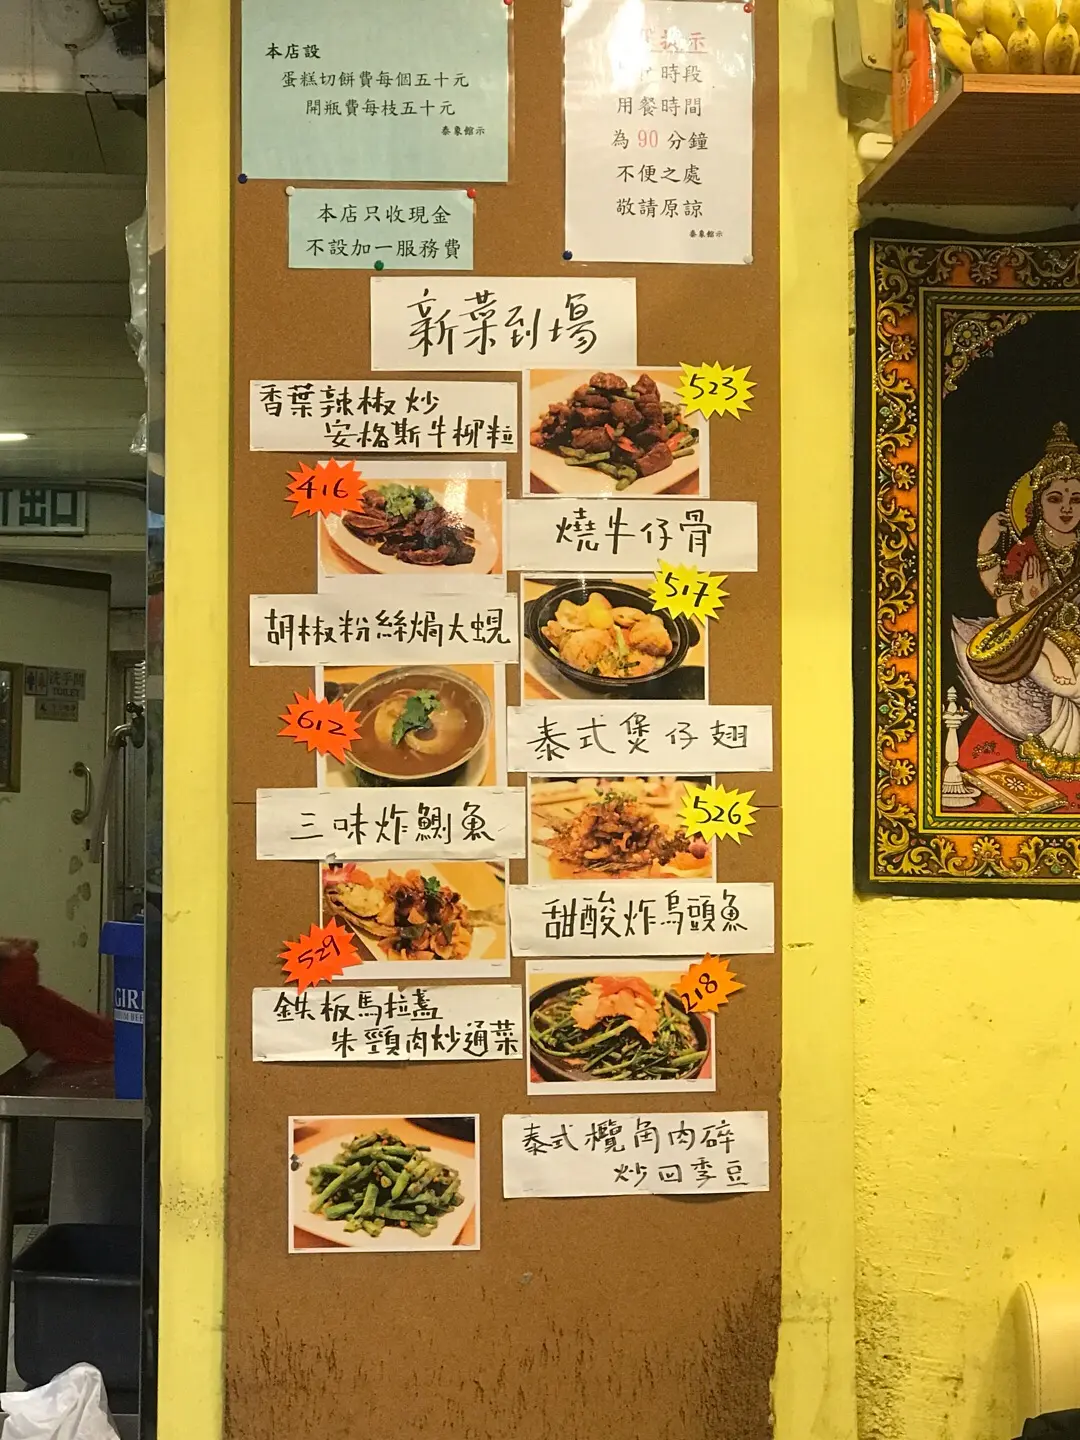 本店設
蛋糕切餅費每個五十元
開瓶費每枝五十元
泰象館示
示
時段
用餐時間
為 90 分鐘
不便之處
敬請原諒
泰象館示
本店只收現金
不設加一服務費
新菜到場
香葉辣椒炒
安格斯牛柳粒
523
416
燒牛仔骨
胡椒粉絲焗大蜆
517
612
泰式煲仔翅
三味炸鰂魚
526
甜酸炸烏頭魚
529
218
鉄板馬拉盞
朱頸肉炒通菜
泰式欖角肉碎
炒四季豆
出口
洗手間
TOILET
GIRL